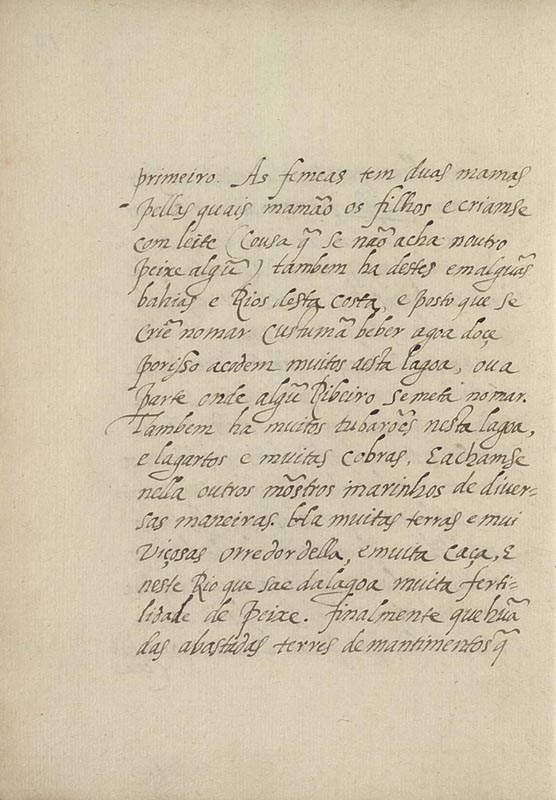 primeiro. As femeas tem duas mamas
pellas quais mamão os filhos e criamse
com leite (Cousa q̃ se não acha noutro
peixe algũ) tambem ha destes emalguãs
bahias e Rios desta costa, e posto que se
criẽ no mar Custumã beber agoa doçe
porisso acodem muitos aesta lagoa, ou a
parte onde algũ Ribeiro se mete no mar.
Tambem ha muitos tubarões nesta lagoa,
e lagartos e muitas cobras. E achamse
nella outros mõstros marinhos de diver-
sas maneiras. Ha muitas terras e mui
viçosas orredor della, e muita caça, E
neste Rio que sae da lagoa muita ferti-
lidade de peixe. finalmente que huã
das abastadas terres de mantimentos q̃